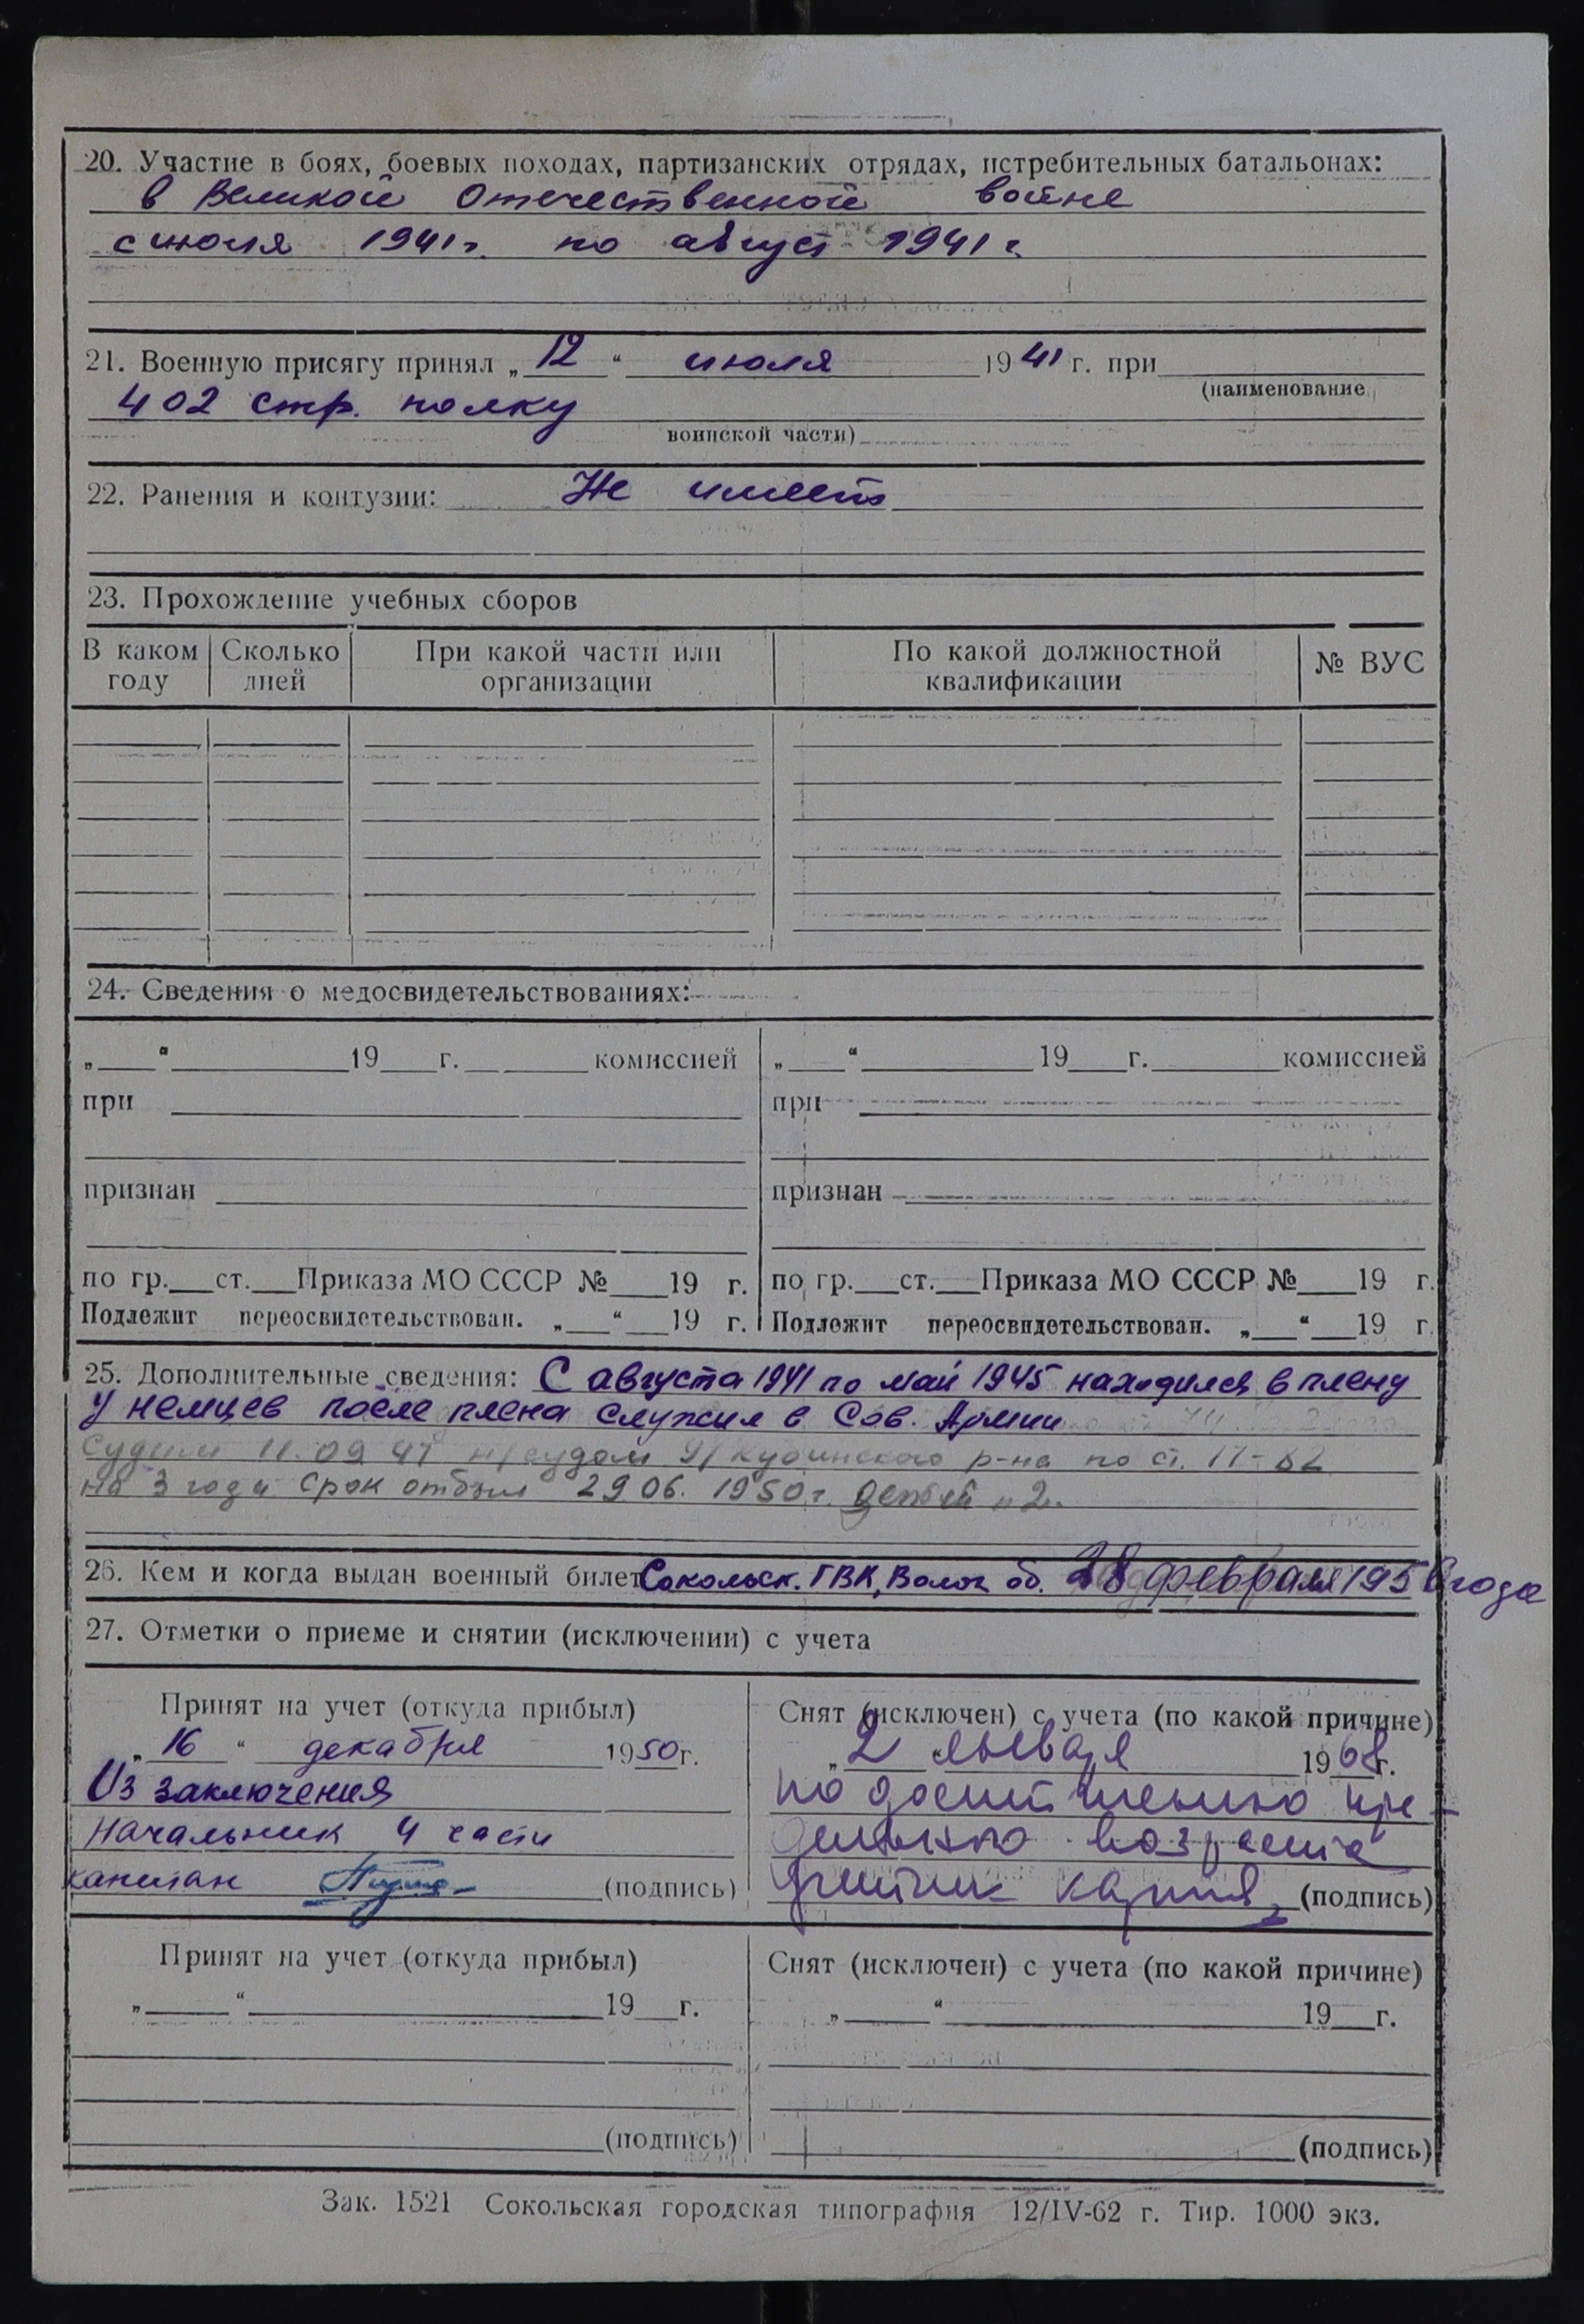 20. Участие в боях, боевых походах, партизанских отрядах, истребительных батальонах:
в Великой Отечественной войне
с июля 1941г. по август 1941г.
21. Военную присягу принял „12“ июля 1941 г. при
(наименование
402 стр. полку
воинской части)
22. Ранения и контузии: Не имеет
23. Прохождение учебных сборов
В каком году Сколько дней При какой части или организации По какой должностной квалификации № ВУС
24. Сведения о медосвидетельствованиях:
„ “ 19 г. комиссией „ “ 19 г. комиссией
при при
признан признан
по гр. ст. Приказа МО СССР № 19 г. по гр. ст. Приказа МО СССР № 19 г.
Подлежит переосвидетельствован. „ “ 19 г. Подлежит переосвидетельствован. „ “ 19 г.
25. Дополнительные сведения: С августа 1941 по май 1945 находился в плену
у немцев после плена служил в Сов. Армии
Судим 11.09 47 н/судом У/Кубинского р-на по ст.
на 3 года срок отбыл 29.06. 1950г. детей „2„
26. Кем и когда выдан военный билет Сокольск. ГВК, Волог. об. 28 февраля 195 года
27. Отметки о приеме и снятии (исключении) с учета
Принят на учет (откуда прибыл) Снят (исключен) с учета (по какой причине)
„16“ декабря 1950г. „2“ января 1968г.
Из заключения по достижению пре-
Начальник 4 части дельного возраста
капитан (подпись) (подпись)
Принят на учет (откуда прибыл) Снят (исключен) с учета (по какой причине)
„ “ 19 г. „ “ 19 г.
(подпись) (подпись)
Зак. 1521 Сокольская городская типография 12/IV-62 г. Тир. 1000 экз.